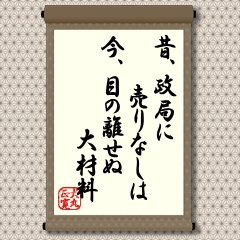 昔、政局に
売りなしは
今、目の離せぬ
大材料